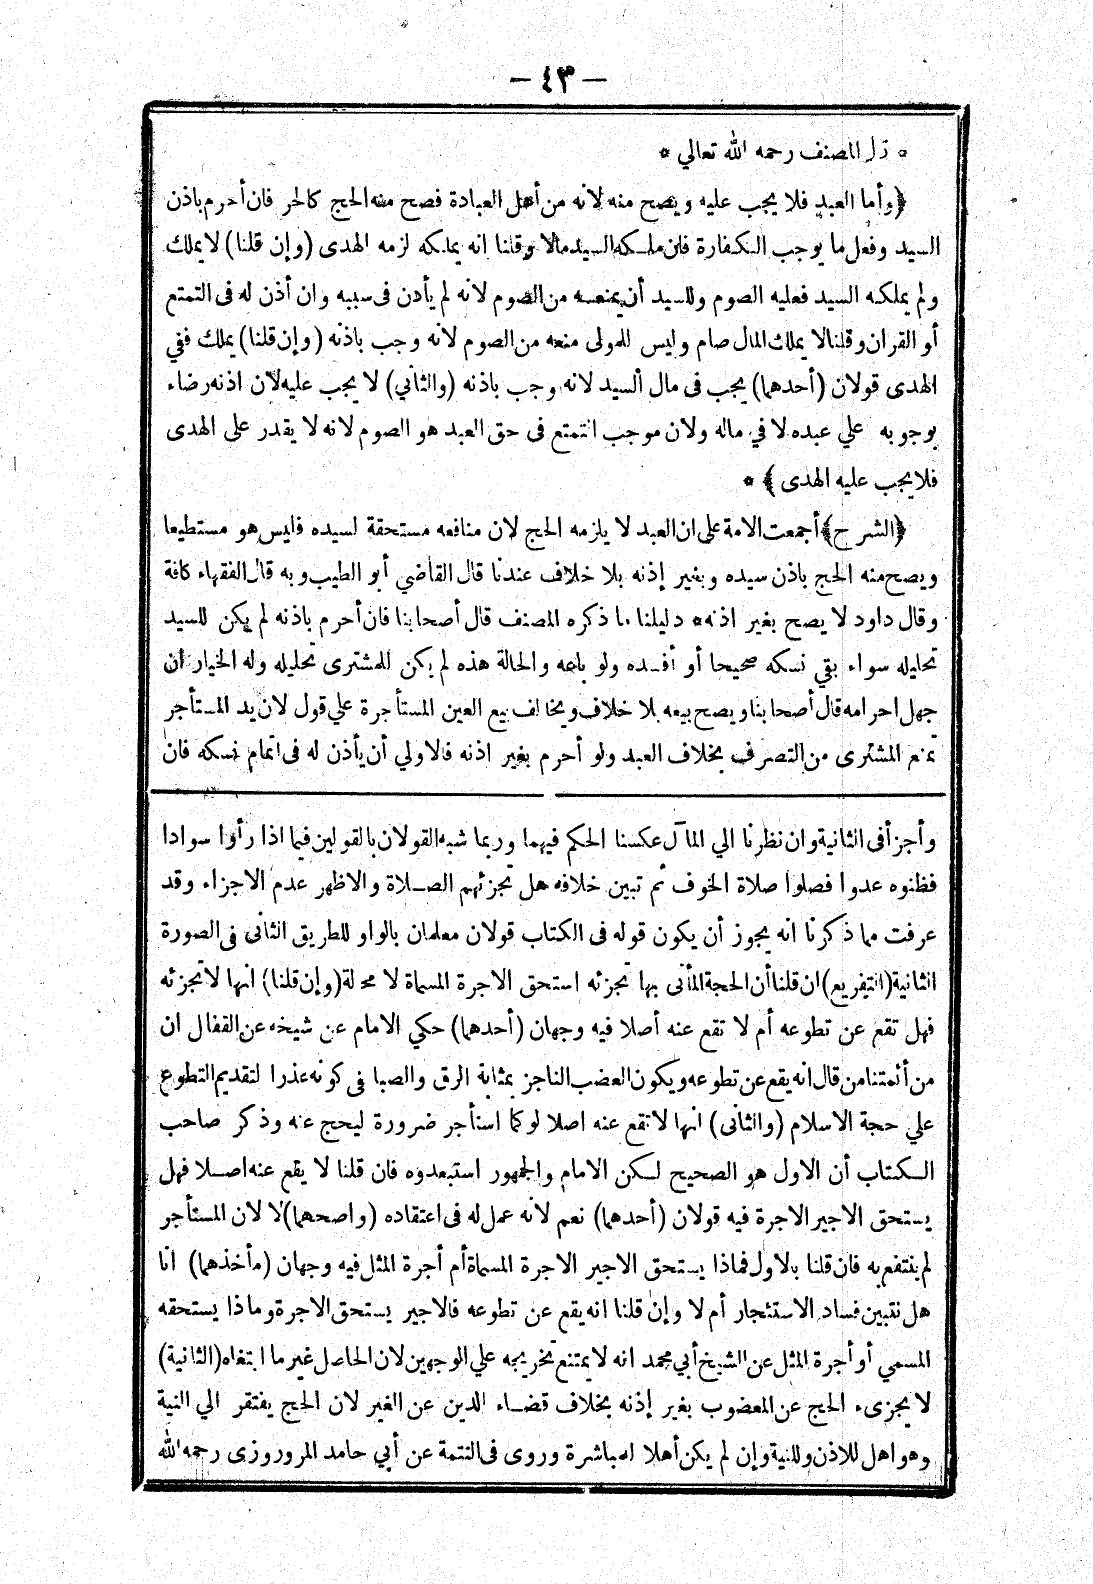 — ٤٣ —
* قال المصنف رحمه الله تعالي *
﴿وأما العبد فلا يجب عليه ويصح منه لانه من أهل العبادة فصح منه الحج كالحر فان أحرم باذن
السيد وفعل ما يوجب الكفارة فان ملكه السيد مالا وقلنا انه يملكه لزمه الهدى (وإن قلنا) لا يملك
ولم يملكه السيد فعليه الصوم وللسيد أن يمنعه من الصوم لانه لم يأذن فى سببه وان أذن له فى التمتع
أو القران وقلنا لا يملك المال صام وليس للمولى منعه من الصوم لانه وجب باذنه (وإن قلنا) يملك ففي
الهدى قولان (أحدهما) يجب فى مال السيد لانه وجب باذنه (والثاني) لا يجب عليه لان اذنه رضاء
بوجوبه علي عبده لا في ماله ولان موجب التمتع فى حق العبد هو الصوم لانه لا يقدر على الهدى
فلا يجب عليه الهدى﴾ *
﴿الشرح﴾ أجمعت الامة على ان العبد لا يلزمه الحج لان منافعه مستحقة لسيده فليس هو مستطيعا
ويصح منه الحج باذن سيده وبغير إذنه بلا خلاف عندنا قال القاضي أبو الطيب وبه قال الفقهاء كافة
وقال داود لا يصح بغير اذنه * دليلنا ما ذكره المصنف قال أصحابنا فان أحرم باذنه لم يكن للسيد
تحليله سواء بقي نسكه صحيحا أو أفسده ولو باعه والحالة هذه لم يكن للمشترى تحليله وله الخيار ان
جهل احرامه قال أصحابنا ويصح بيعه بلا خلاف ويخالف بيع العين المستأجرة علي قول لان يد المستأجر
تمنع المشترى من التصرف بخلاف العبد ولو أحرم بغير اذنه فالاولي أن يأذن له فى اتمام نسكه فان
وأجزأ فى الثانية وان نظرنا الي المآل عكسنا الحكم فيهما وربما شبه القولان بالقولين فيما اذا رأوا سوادا
فظنوه عدوا فصلوا صلاة الخوف ثم تبين خلافه هل تجزئهم الصلاة والاظهر عدم الاجزاء وقد
عرفت مما ذكرنا انه يجوز أن يكون قوله فى الكتاب قولان معلمان بالواو للطريق الثانى فى الصورة
الثانية (التفريع) ان قلنا أن الحجة المأتى بها تجزئه استحق الاجرة المسماة لا محالة (وإن قلنا) انها لا تجزئه
فهل تقع عن تطوعه أم لا تقع عنه أصلا فيه وجهان (أحدهما) حكي الامام عن شيخه عن القفال ان
من أئمتنا من قال انه يقع عن تطوعه ويكون العضب الناجز بمثابة الرق والصبا فى كونه عذرا لتقديم التطوع
علي حجة الاسلام (والثانى) انها لا تقع عنه اصلا لو كما استأجر ضرورة ليحج عنه وذكر صاحب
الكتاب أن الاول هو الصحيح لكن الامام والجمهور استبعدوه فان قلنا لا يقع عنه اصلا فهل
يستحق الاجير الاجرة فيه قولان (أحدهما) نعم لانه عمل له فى اعتقاده (واصحهما) لا لان المستأجر
لم ينتفع به فان قلنا بالاول فماذا يستحق الاجير الاجرة المسماة أم أجرة المثل فيه وجهان (مأخذهما) انا
هل نتبين فساد الاستئجار أم لا وإن قلنا انه يقع عن تطوعه فالاجير يستحق الاجرة وماذا يستحقه
المسمي أو أجرة المثل عن الشيخ أبي محمد انه لا يمتنع تخريجه علي الوجهين لان الحاصل غير ما ابتغاه (الثانية)
لا يجزىء الحج عن المعضوب بغير إذنه بخلاف قضاء الدين عن الغير لان الحج يفتقر الي النية
وهو اهل للاذن وللنية وإن لم يكن أهلا لمباشرة وروى فى التتمة عن أبي حامد المروروزى رحمه الله